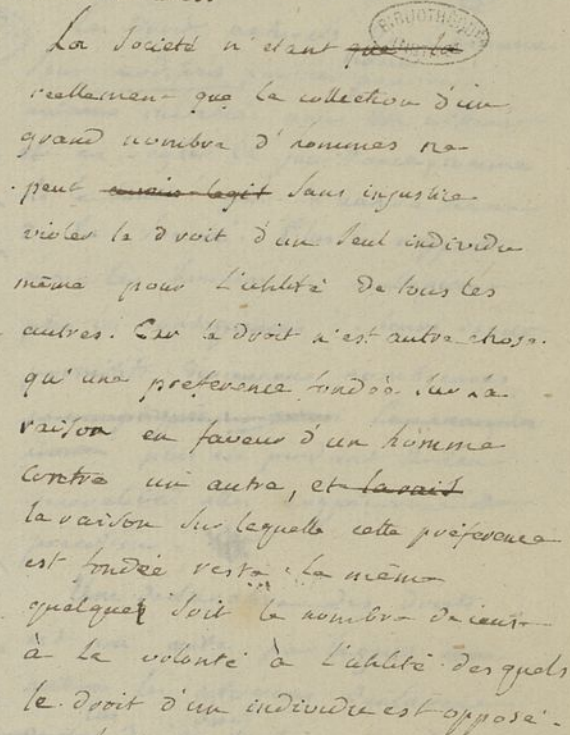 La Societé n'etant que la
BIBLIOTHEQUE
reellement que la collection d'un
grand nombre d'hommes ne
peut sans injustice
violer le droit d'un seul individu
même pour l'utilité de tous les
autres. Car le droit n'est autre chose
qu'une preference fondée sur la
raison en faveur d'un homme
contre un autre, et la rais
la raison sur laquelle cette preference
est fondée reste la même
quelque soit le nombre de ceux
à la volonté à l'utilité desquels
le droit d'un individu est opposé.